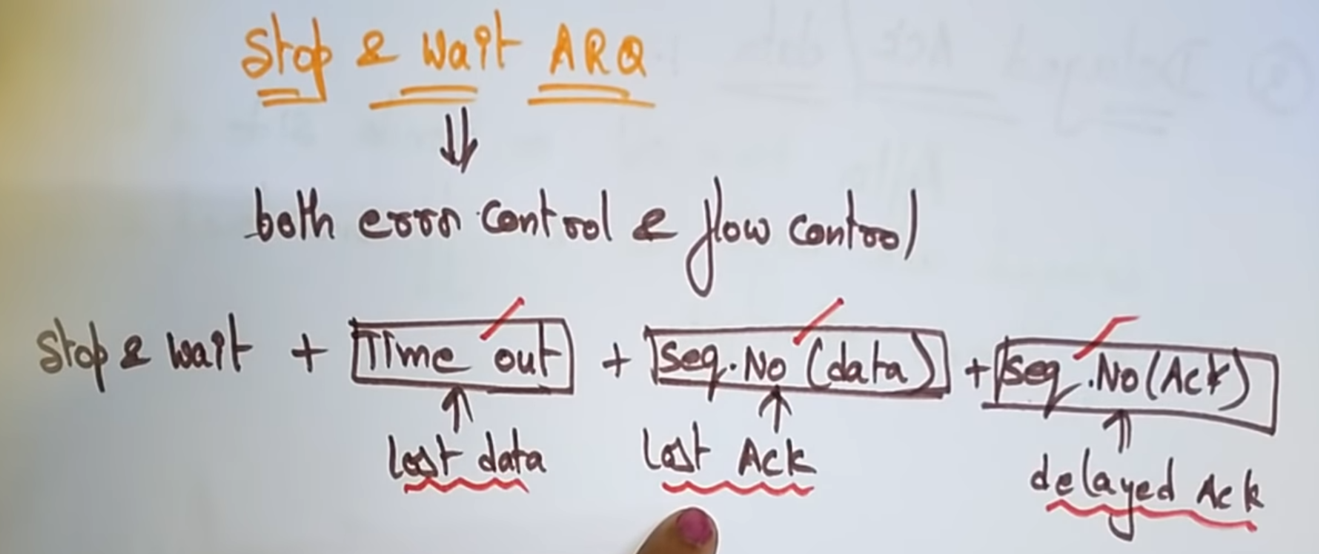 Stop & Wait ARQ
both error control & flow control
Stop & Wait + Time out + Seq.No (data) + Seq.No (Ack)
lost data lost Ack delayed Ack